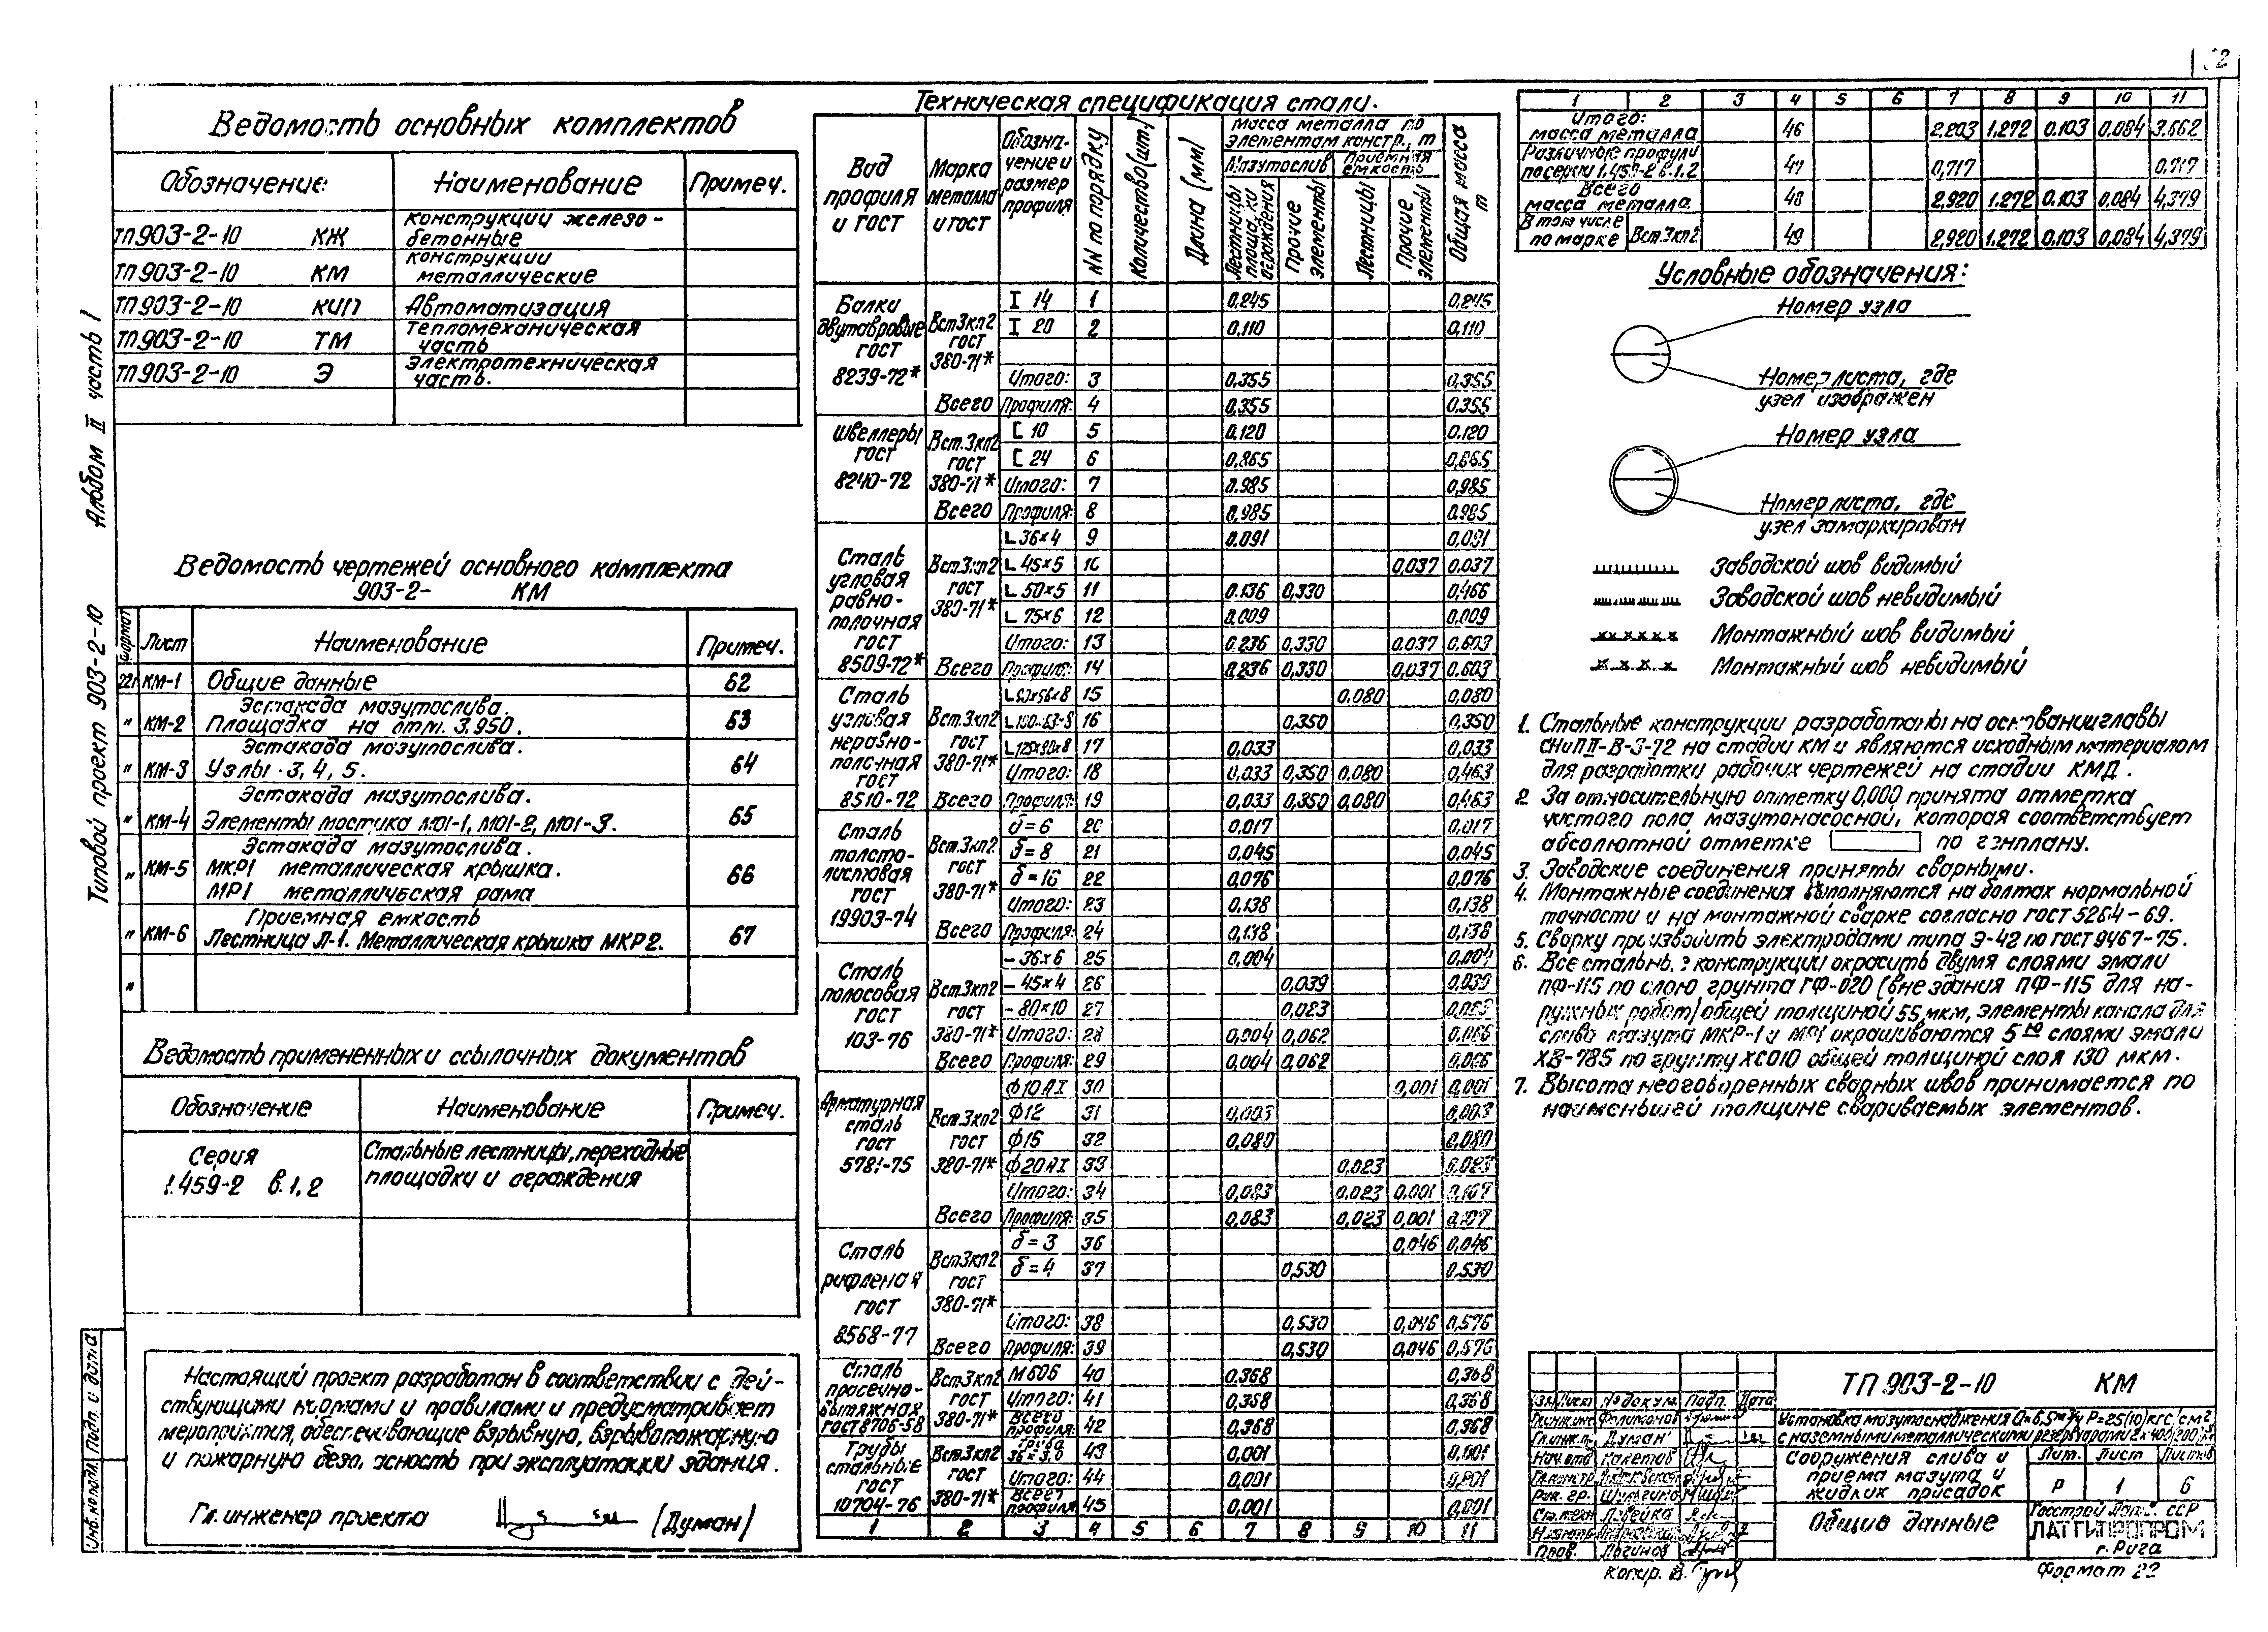 Альбом II часть I
Типовой проект 903-2-10
Инв.№ подл. Подп. и дата
Ведомость основных комплектов
Обозначение Наименование Примеч.
ТП903-2-10 КЖ конструкции железо-
бетонные
ТП903-2-10 КМ конструкции
металлические
ТП903-2-10 КИП Автоматизация
ТП903-2-10 ТМ Тепломеханическая
часть
ТП903-2-10 Э Электротехническая
часть.
Ведомость чертежей основного комплекта
903-2- КМ
формат Лист Наименование Примеч.
22г КМ-1 Общие данные 62
" КМ-2 Эстакада мазутослива.
Площадка на отм. 3.950. 63
" КМ-3 Эстакада мазутослива.
Узлы 3, 4, 5. 64
" КМ-4 Эстакада мазутослива.
Элементы мостика МО1-1, МО1-2, МО1-3. 65
" КМ-5 Эстакада мазутослива.
МКР1 металлическая крышка. 66
МР1 металлическая рама
" КМ-6 Приемная емкость
Лестница Л-1. Металлическая крышка МКР2. 67
"
Ведомость примененных и ссылочных документов
Обозначение Наименование Примеч.
Серия Стальные лестницы, переходные
1.459-2 в.1,2 площадки и ограждения
Настоящий проект разработан в соответствии с дей-
ствующими нормами и правилами и предусматривает
мероприятия, обеспечивающие взрывную, взрывопожарную
и пожарную безопасность при эксплуатации здания.
Гл. инженер проекта (Думан)
Техническая спецификация стали.
Вид профиля и ГОСТ
Марка металла и ГОСТ
Обозна-
чение и
размер
профиля
NN по порядку
Количество (шт.)
Длина (мм)
масса металла по
элементам констр., т
Мазутослив Приемная емкость
Лестницы площадки ограждения
Прочие элементы
Лестницы
Прочие элементы
Общая масса т
Балки двутавровые ГОСТ 8239-72*
Вст3кп2 ГОСТ 380-71*
I 14 1 0.245 0.245
I 20 2 0.110 0.110
Итого: 3 0.355 0.355
Всего Профиля: 4 0.355 0.355
Швеллеры ГОСТ 8240-72
Вст.3кп2 ГОСТ 380-71*
[ 10 5 0.120 0.120
[ 24 6 0.865 0.865
Итого: 7 0.985 0.985
Всего Профиля: 8 0.985 0.985
Сталь угловая равно-полочная ГОСТ 8509-72*
Вст.3кп2 ГОСТ 380-71*
L 36×4 9 0.091 0.091
L 45×5 10 0.037 0.037
L 50×5 11 0.136 0.330 0.466
L 75×6 12 0.009 0.009
Итого: 13 0.236 0.330 0.037 0.603
Всего Профиля: 14 0.236 0.330 0.037 0.603
Сталь угловая неравно-полочная ГОСТ 8510-72
Вст.3кп2 ГОСТ 380-71*
15 0.080 0.080
16 0.350 0.350
L125×80×8 17 0.033 0.033
Итого: 18 0.033 0.350 0.080 0.463
Всего Профиля: 19 0.033 0.350 0.080 0.463
Сталь толсто-листовая ГОСТ 19903-74
Вст.3кп2 ГОСТ 380-71*
δ=6 20 0.017 0.017
δ=8 21 0.045 0.045
δ=16 22 0.076 0.076
Итого: 23 0.138 0.138
Всего Профиля: 24 0.138 0.138
Сталь полосовая ГОСТ 103-76
Вст.3кп2 ГОСТ 380-71*
- 36×6 25 0.004 0.004
- 45×4 26 0.039 0.039
- 80×10 27 0.023 0.023
Итого: 28 0.004 0.062 0.066
Всего Профиля: 29 0.004 0.062 0.066
Арматурная сталь ГОСТ 5781-75
Вст.3кп2 ГОСТ 380-71*
ф10АI 30 0.001 0.001
ф12 31 0.003 0.003
ф16 32 0.080 0.080
ф20АI 33 0.023 0.023
Итого: 34 0.083 0.023 0.001 0.107
Всего Профиля: 35 0.083 0.023 0.001 0.107
Сталь рифленая ГОСТ 8568-77
Вст3кп2 ГОСТ 380-71*
δ=3 36 0.046 0.046
δ=4 37 0.530 0.530
Итого: 38 0.530 0.046 0.576
Всего Профиля: 39 0.530 0.046 0.576
Сталь просечно-вытяжная ГОСТ 8706-58
Вст.3кп2 ГОСТ 380-71*
М606 40 0.368 0.368
Итого: 41 0.368 0.368
Всего профиля: 42 0.368 0.368
Трубы стальные ГОСТ 10704-76
Вст.3кп2 ГОСТ 380-71*
43 0.001 0.001
Итого: 44 0.001 0.001
Всего профиля 45 0.001 0.001
1 2 3 4 5 6 7 8 9 10 11
1 2 3 4 5 6 7 8 9 10 11
Итого:
масса металла 46 2.203 1.272 0.103 0.084 3.662
Различные профили
по серии 1.459-2 в.1.2 47 0.717 0.717
Всего
масса металла. 48 2.920 1.272 0.103 0.084 4.379
В том числе
по марке Вст.3кп2 49 2.920 1.272 0.103 0.084 4.379
Условные обозначения:
Номер узла
Номер листа, где
узел изображен
Номер узла
Номер листа, где
узел замаркирован
Заводской шов видимый
Заводской шов невидимый
Монтажный шов видимый
Монтажный шов невидимый
1. Стальные конструкции разработаны на основании главы
СНиП II-В-3-72 на стадии КМ и являются исходным материалом
для разработки рабочих чертежей на стадии КМД.
2. За относительную отметку 0,000 принята отметка
чистого пола мазутонасосной, которая соответствует
абсолютной отметке по генплану.
3. Заводские соединения приняты сварными.
4. Монтажные соединения выполняются на болтах нормальной
точности и на монтажной сварке согласно ГОСТ 5264-69.
5. Сварку производить электродами типа Э-42 по ГОСТ 9467-75.
6. Все стальные конструкции окрасить двумя слоями эмали
ПФ-115 по слою грунта ГФ-020 (вне здания ПФ-115 для на-
ружных работ) общей толщиной 55 мкм, элементы канала для
слива мазута МКР-1 и МР1 окрашиваются 5ю слоями эмали
ХВ-785 по грунту ХС010 общей толщиной слоя 130 мкм.
7. Высота неоговоренных сварных швов принимается по
наименьшей толщине свариваемых элементов.
Изм. Лист № докум. Подп. Дата
Гл.инж.пр. Думан
Нач.отд.
Рук. гр.
Пров. Логинов
ТП 903-2-10 КМ
Установка мазутоснабжения Q=6.5м³/ч Р=25(10)кгс/см²
с наземными металлическими резервуарами 2×400(200)м³
Сооружения слива и
приема мазута и
жидких присадок
Лит. Лист Листов
Р 1 6
Общие данные
Госстрой Латв. ССР
ЛАТГИПРОПРОМ
г. Рига
Копир.
Формат 22